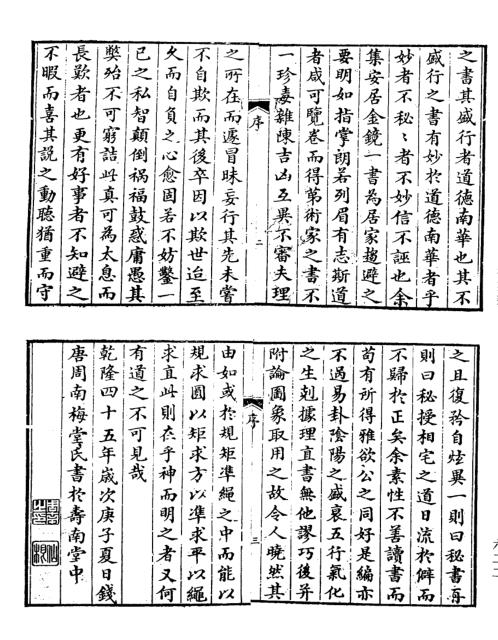 之書其盛行者道德南華也其不
盛行之書有妙於道德南華者乎
妙者不秘〻者不妙信不誣也余
集安居金鏡一書為居家趨避之
要明如指掌朗若列眉有志斯道
者咸可覽卷而得第術家之書不
一珍
雜陳吉凶互異不審夫理
序
二
之所在而遽冒昧妄行其先未嘗
不自欺而其後卒因以欺世迨至
久而自負之心愈固若不妨鑿一
己之私智顛倒禍福鼓惑庸愚其
獘殆不可窮詰此真可為太息而
長歎者也更有好事者不知避之
不暇而喜其說之動聽猶重而守
之且復矜自炫異一則曰秘書再
則曰秘授相宅之道日流於僻而
不歸於正矣余素性不善讀書而
苟有所得雅欲公之同好是編亦
不過易卦陰陽之盛衰五行氣化
之生剋據理直書無他謬巧後并
附論圖象取用之故令人曉然其
序
三
由如或於規矩準繩之中而能以
規求圓以矩求方以準求平以繩
求直此則在乎神而明之者又何
有道之不可見哉
乾隆四十五年歲次庚子夏日錢
唐周南梅堂氏書於壽南堂中